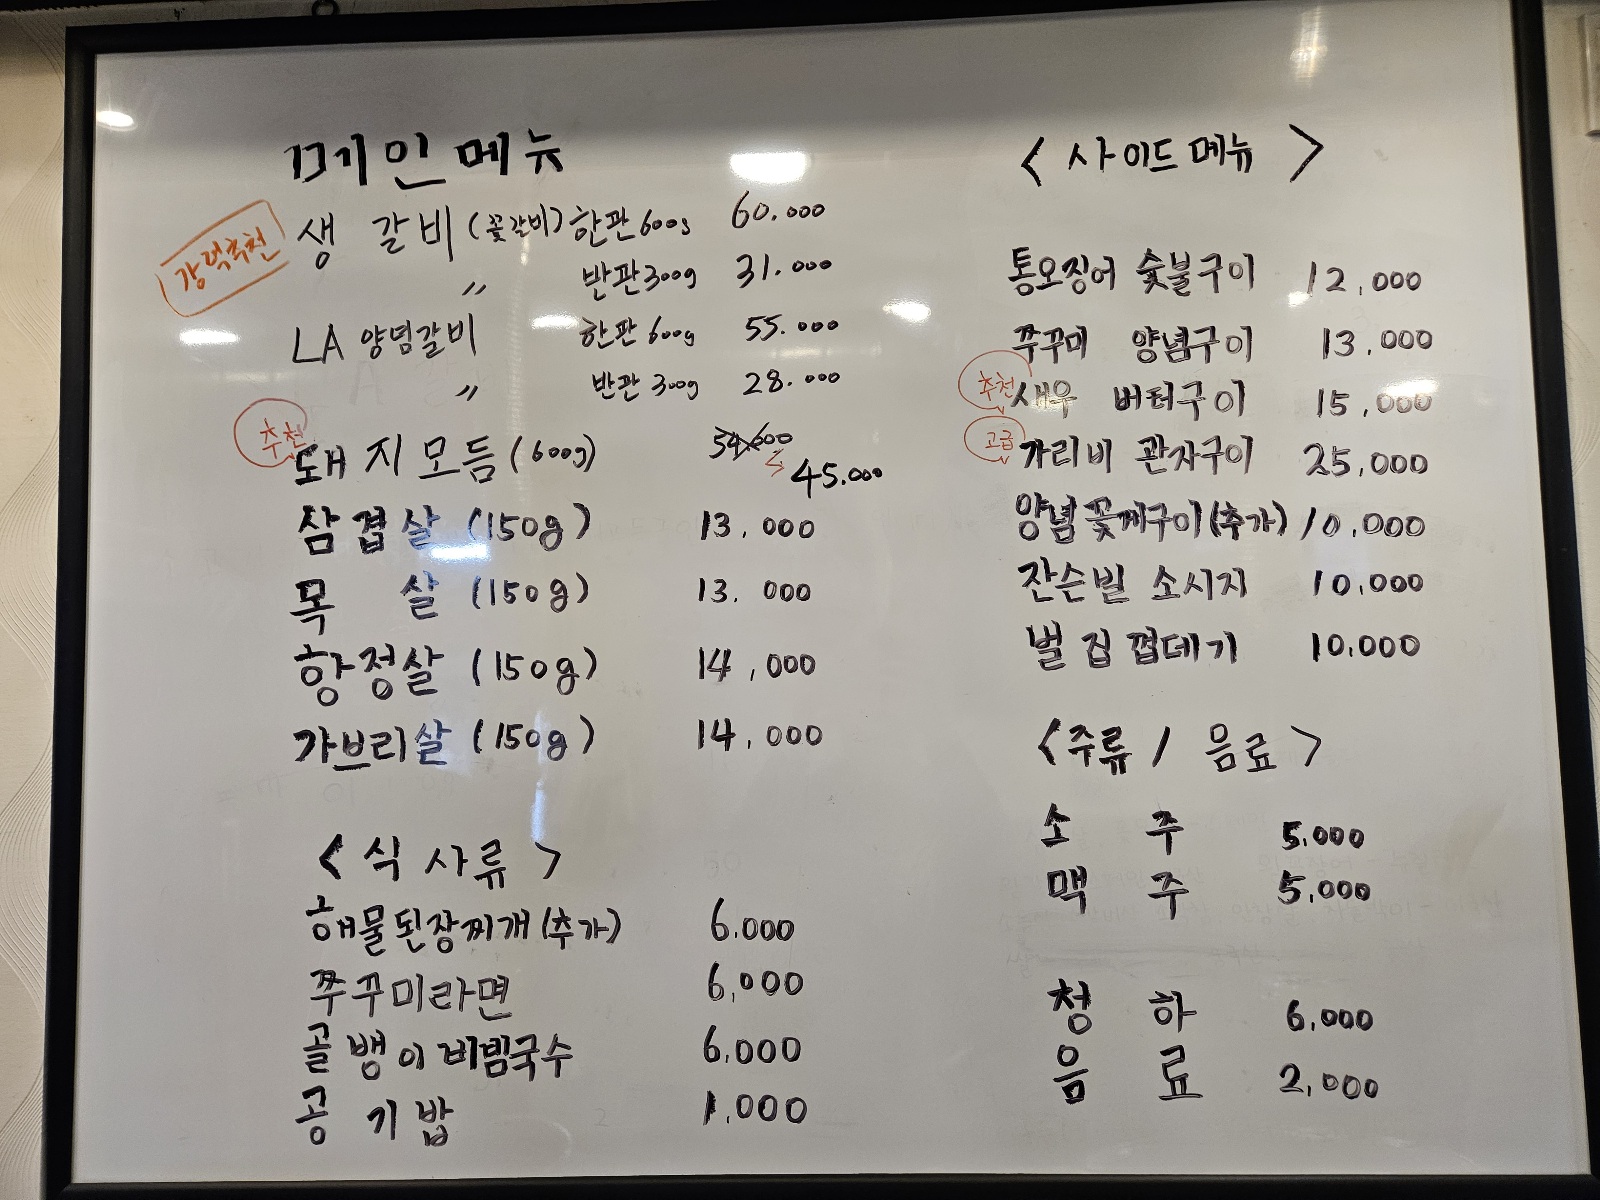 메인메뉴
강력추천
생 갈비 (꽃갈비) 한판 600g 60.000
〃 반판 300g 31.000
LA 양념갈비 한판 600g 55.000
〃 반판 300g 28.000
추천
돼지모듬 (600g) 54.000 45.000
삼겹살 (150g) 13,000
목 살 (150g) 13.000
항정살 (150g) 14,000
가브리살 (150g) 14,000
<식사류>
해물된장찌개 (추가) 6.000
쭈꾸미라면 6,000
골뱅이비빔국수 6,000
공기밥 1,000
<사이드메뉴>
통오징어 숯불구이 12,000
쭈꾸미 양념구이 13,000
추천
새우 버터구이 15,000
고급
가리비 관자구이 25,000
양념꽃게구이(추가) 10,000
잔슨빌 소시지 10.000
벌집껍데기 10.000
<주류 / 음료>
소 주 5.000
맥 주 5,000
청 하 6,000
음 료 2,000